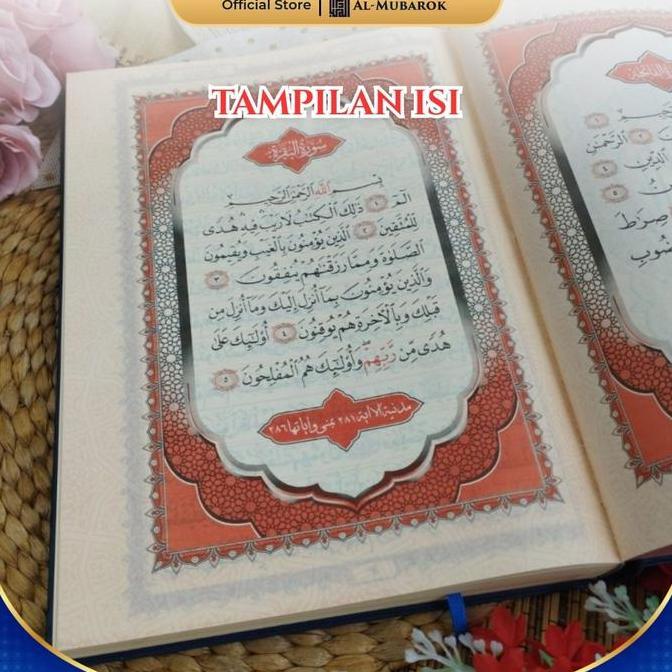 Official Store | AL-MUBAROK
TAMPILAN ISI
سورة البقرة
بسم الله الرحمن الرحيم
الم ١ ذلك الكتب لا ريب فيه هدى
للمتقين ٢ الذين يؤمنون بالغيب ويقيمون
الصلوة ومما رزقنهم ينفقون ٣
والذين يؤمنون بما أنزل إليك وما أنزل من
قبلك وبالآخرة هم يوقنون ٤ أولئك على
هدى من ربهم وأولئك هم المفلحون ٥
مدنية إلا آية ٢٨١ بمنى وآياتها ٢٨٦
الرحمن
الذين
صرط